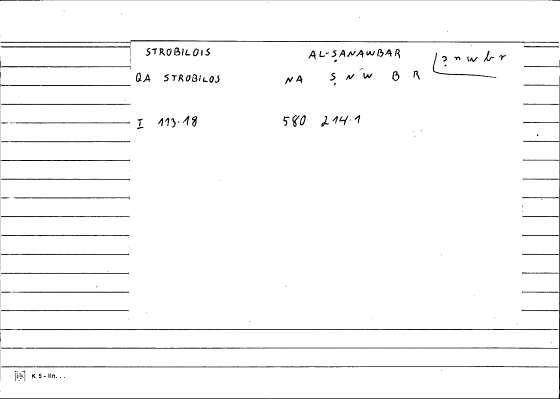 STROBILOIS AL-ṢANAWBAR ṣnwbr
QA STROBILOS NA ṢNWBR
I 113.18 580 214.1
K 5 - lin...